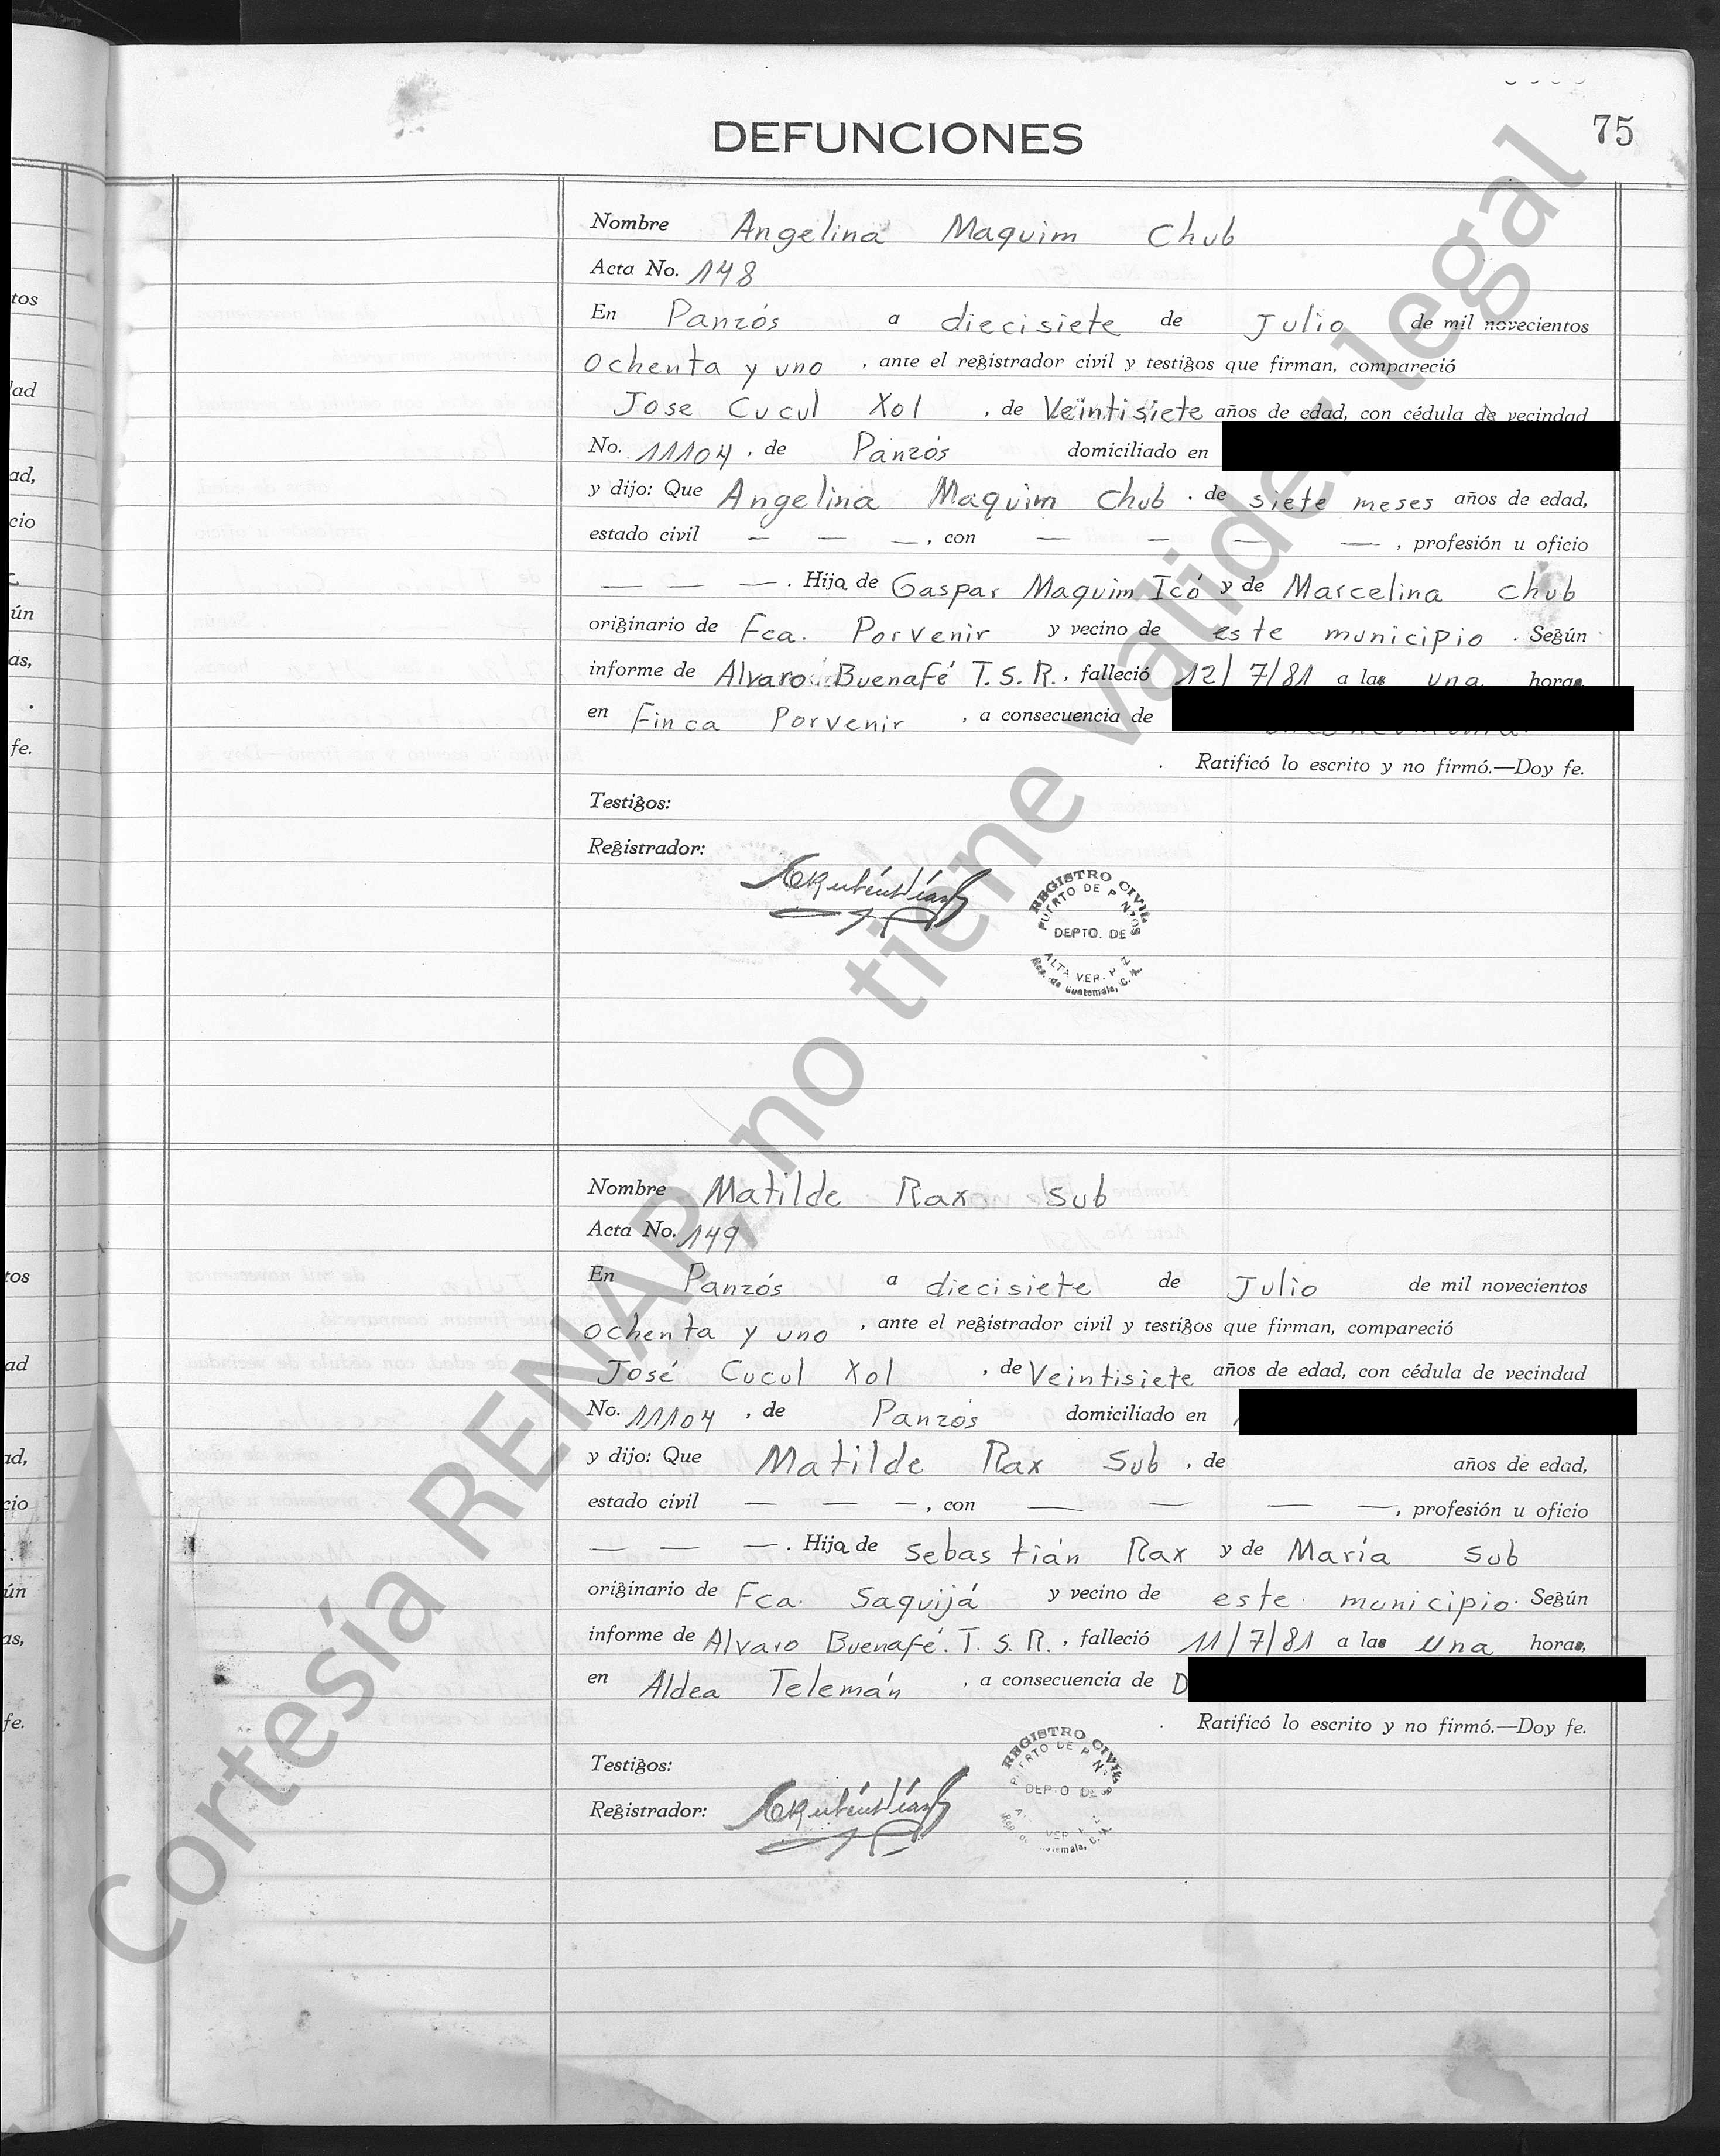 DEFUNCIONES
75
Nombre Angelina Maquim Chub
Acta No. 148
En Panzós a diecisiete de Julio de mil novecientos
Ochenta y uno , ante el registrador civil y testigos que firman, compareció
Jose Cucul Xol , de Veintisiete años de edad, con cédula de vecindad
No. 11104 , de Panzós domiciliado en
y dijo: Que Angelina Maquim Chub . de siete meses años de edad,
estado civil — — — , con — — — — , profesión u oficio
— — — . Hija de Gaspar Maquim Icó y de Marcelina Chub
originario de Fca. Porvenir y vecino de este municipio . Según
informe de Alvaro Buenafé T. S. R. , falleció 12/7/81 a las una horas,
en Finca Porvenir , a consecuencia de
. Ratificó lo escrito y no firmó.—Doy fe.
Testigos:
Registrador:
REGISTRO CIVIL
DEPTO. DE
ALTA VER.
Rep. de Guatemala, C. A.
Nombre Matilde Rax Sub
Acta No. 149
En Panzós a diecisiete de Julio de mil novecientos
Ochenta y uno , ante el registrador civil y testigos que firman, compareció
José Cucul Xol , de Veintisiete años de edad, con cédula de vecindad
No. 11104 , de Panzós domiciliado en
y dijo: Que Matilde Rax Sub , de años de edad,
estado civil — — — , con — — — — , profesión u oficio
— — — . Hija de Sebastián Rax y de María Sub
originario de Fca. Saquijá y vecino de este municipio . Según
informe de Alvaro Buenafé. T. S. R. , falleció 11/7/81 a las una horas,
en Aldea Telemán , a consecuencia de D
. Ratificó lo escrito y no firmó.—Doy fe.
Testigos:
Registrador:
REGISTRO CIVIL
Cortesía RENAP, no tiene validez legal